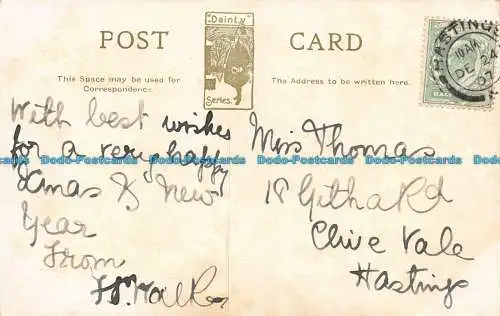 POST CARD
"Dainty"
Series.
This Space may be used for
Correspondence.
The Address to be written here.
HASTINGS
DE 24
07
With best wishes
for a very happy
Xmas & New
Year
From
Miss Thomas
18 Githa Rd
Clive Vale
Hastings
Dodo-Postcards Dodo-Postcards Dodo-Postcards Dodo-Postcards Dodo-Postcards